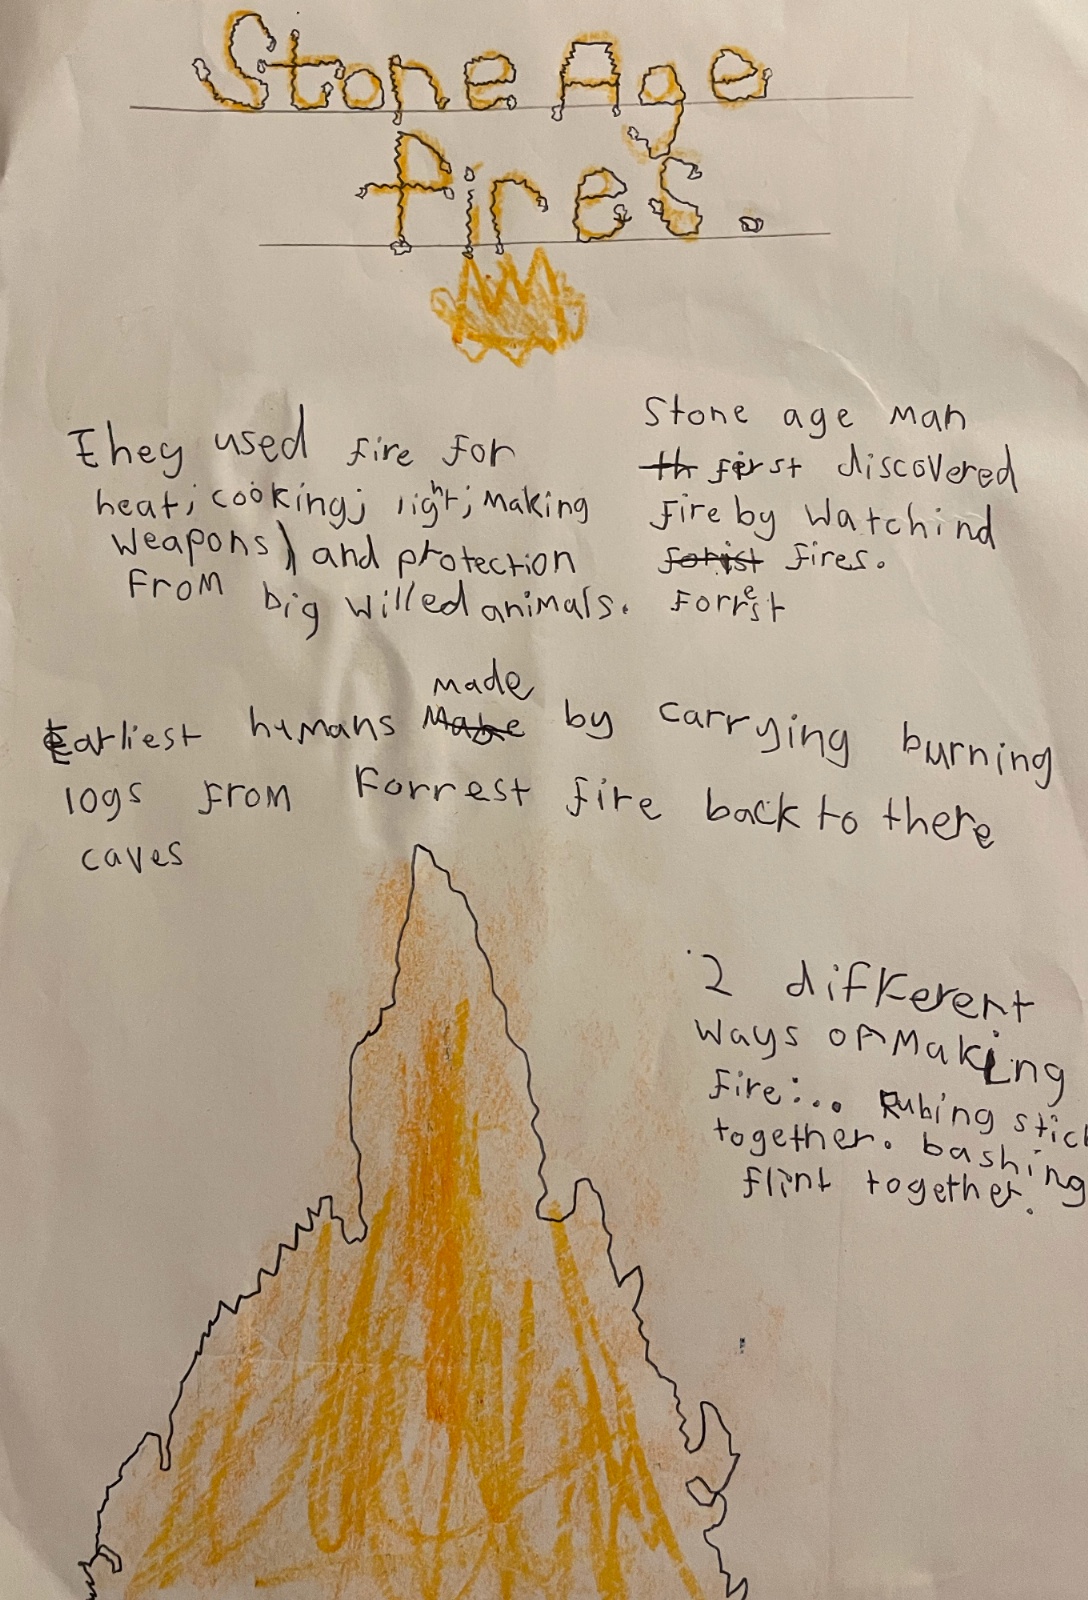 Stone Age
fires.
They used fire for
heat; cooking; light; making
weapons) and protection
from big willed animals.
Stone age man
th first discovered
fire by watchind
forist fires.
Forrest
made
Earliest humans Mabe by carrying burning
logs from Forrest fire back to there
caves
2 difference
ways of making
fire:.. Rubing stick
together. bashing
flint together.